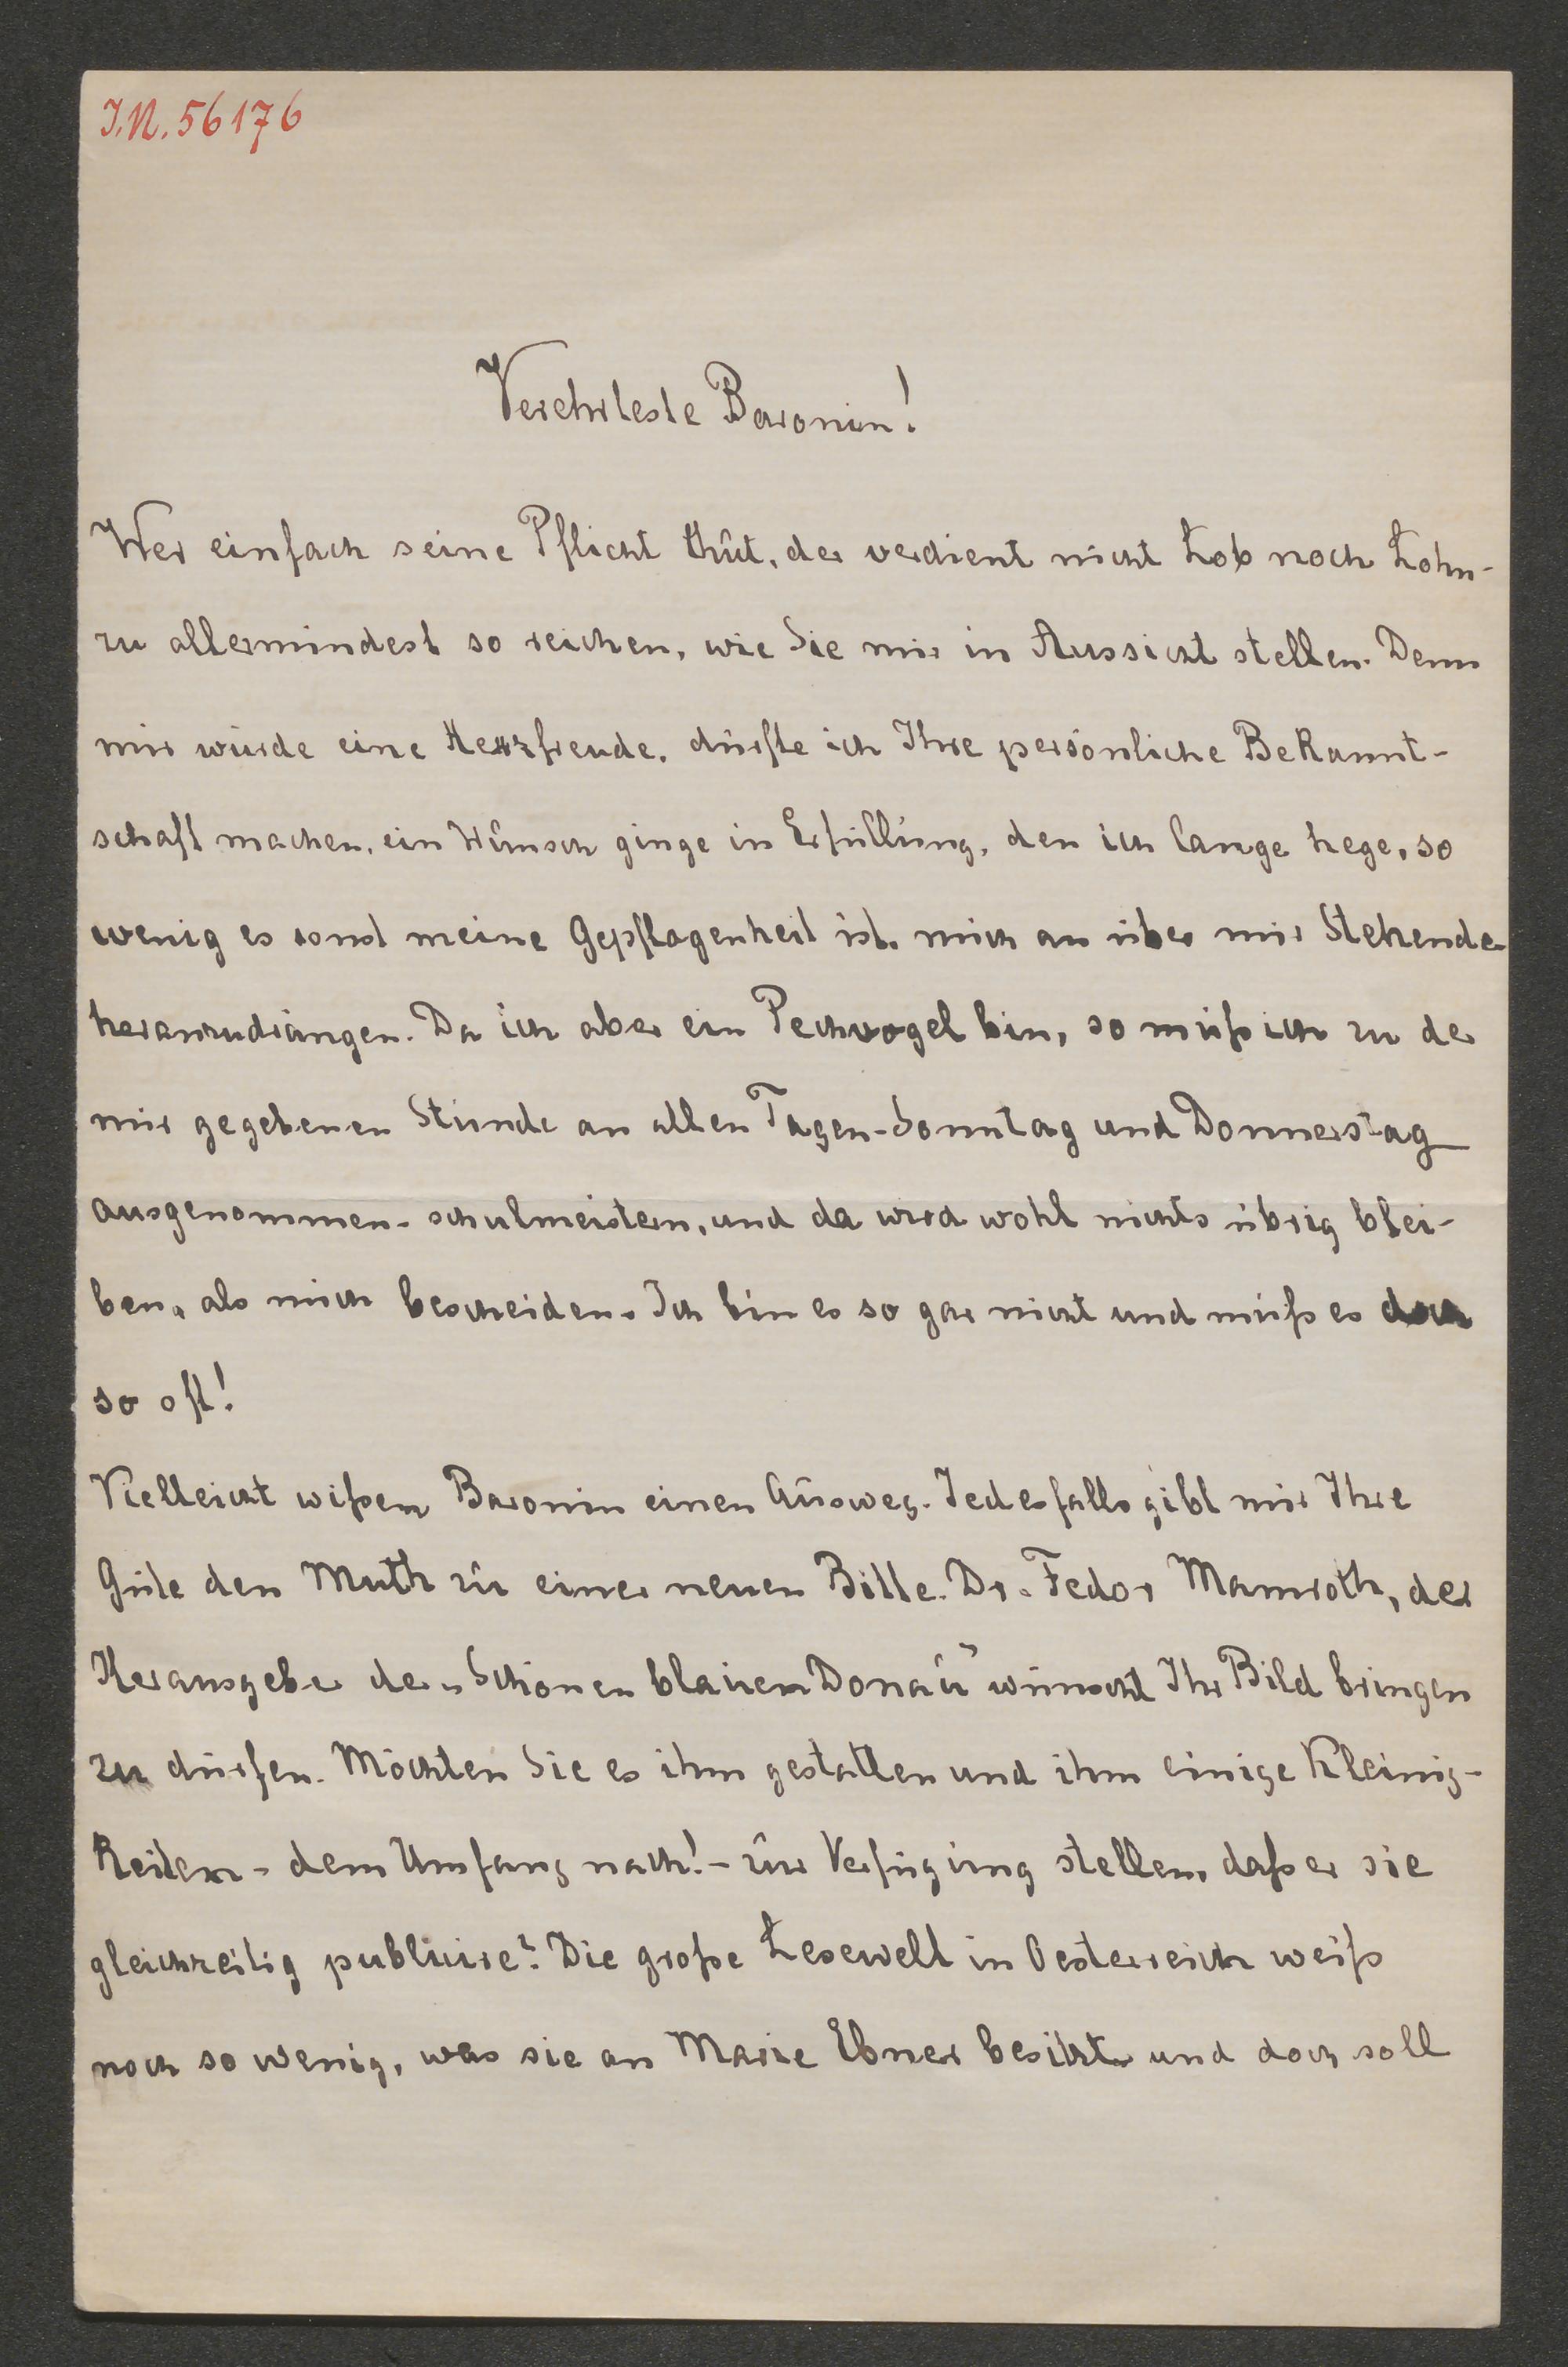 I.N. 56176
Verehrteste Baronin!
Wer einfach seine Pflicht thut, der verdient nicht Lob noch Lohn -
zu allermindest so reichen, wie Sie mir in Aussicht stellen. Denn
mir würde eine Herzfreude, dürfte ich Ihre persönliche Bekannt-
schaft machen, ein Wunsch ginge in Erfüllung, den ich lange hege, so
wenig es sonst meine Gepflogenheit ist, mich an über mir Stehende
heranzudrängen. Da ich aber ein Pechvogel bin, so muß ich zu der
mir gegebenen Stunde an allen Tagen - Sonntag und Donnerstag
ausgenommen - schulmeistern, und da wird wohl nichts übrig blei-
ben, als mich bescheiden. Ich bin es so gar nicht und muß es doch
so oft!
Vielleicht wißen Baronin einen Ausweg. Jedesfalls gibt mir Ihre
Güte den Muth zu einer neuen Bitte. Dr. Fedor Mamroth, der
Herausgeber der „Schönen blauen Donau“ wünscht Ihr Bild bringen
zu dürfen. Möchten Sie es ihm gestatten und ihm einige Kleinig-
keiten - dem Umfang nach! - zur Verfügung stellen, daß er sie
gleichzeitig publicire? Die große Lesewelt in Oesterreich weiß
noch so wenig, was sie an Marie Ebner besitzt und doch soll